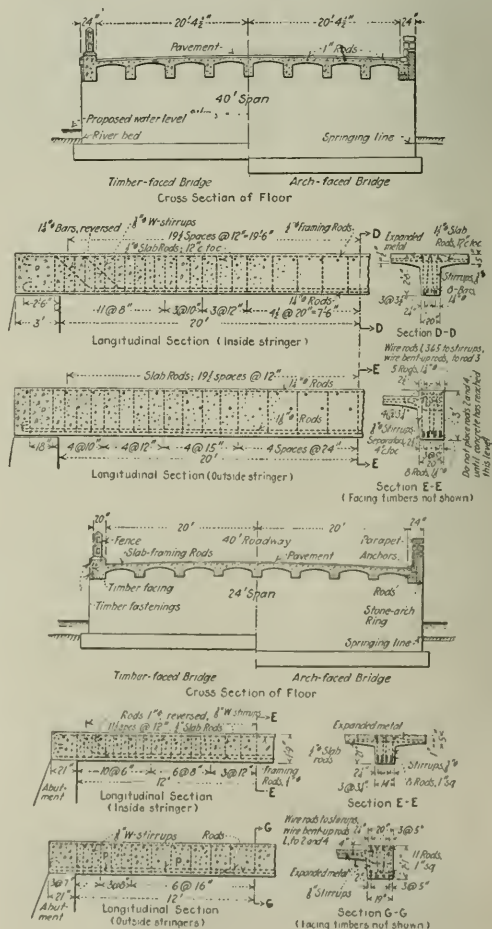 24"
20'-4½"
20'-4½"
24"
Pavement
1" Rods
40' Span
Proposed water level
River bed
Springing line
Timber-faced Bridge
Arch-faced Bridge
Cross Section of Floor
Bars, reversed
W-stirrups
framing Rods
19½ Spaces @ 12" = 19'-6"
Slab Rods, 12" c. to c.
D
2'-6"
11 @ 8"
3 @ 10"
3 @ 12"
4½ @ 20" = 7'-6"
3'
20'
D
Longitudinal Section (Inside stringer)
Expanded metal
Slab Rods, 12" c. to c.
Stirrups
20"
Section D-D
Slab Rods; 19½ spaces @ 12"
E
Rods
Rods
18"
4 @ 10"
4 @ 12"
4 @ 15"
4 Spaces @ 24"
20'
E
Longitudinal Section (Outside stringer)
Wire rods 1,3&5 to stirrups,
wire bent-up rods, to rod 3
5 Rods,
Stirrups
Separators,
4' c. to c.
3'
Do not place rods 2 and 4,
until concrete has reached
this level
20"
8 Rods,
Section E-E
(Facing timbers not shown)
20"
20'
20'
24"
Fence
40' Roadway
Parapet
Slab-framing Rods
Pavement
Anchors
Timber facing
Rods
24' Span
Timber fastenings
Stone-arch
Ring
Springing line
Timber-faced Bridge
Arch-faced Bridge
Cross Section of Floor
Rods 1"⌀, reversed,
W stirrups
E
12"
Slab Rods
21"
10 @ 6"
6 @ 8"
3 @ 12"
Framing
Rods,
12'
E
Abutment
Longitudinal Section
(Inside stringer)
Expanded metal
Slab rods
Stirrups,
8 Rods, 1" sq
Section E-E
W-stirrups
Rods
G
3 @ 7"
3 @ 8"
6 @ 16"
21"
12'
G
Abutment
Longitudinal Section
(Outside stringers)
Wire rods to stirrups,
wire bent-up rods
1, to 2 and 4
20"
3 @ 5"
11 Rods,
1" sq
Expanded metal
Stirrups
3 @ 5"
19"
Section G-G
(Facing timbers not shown)